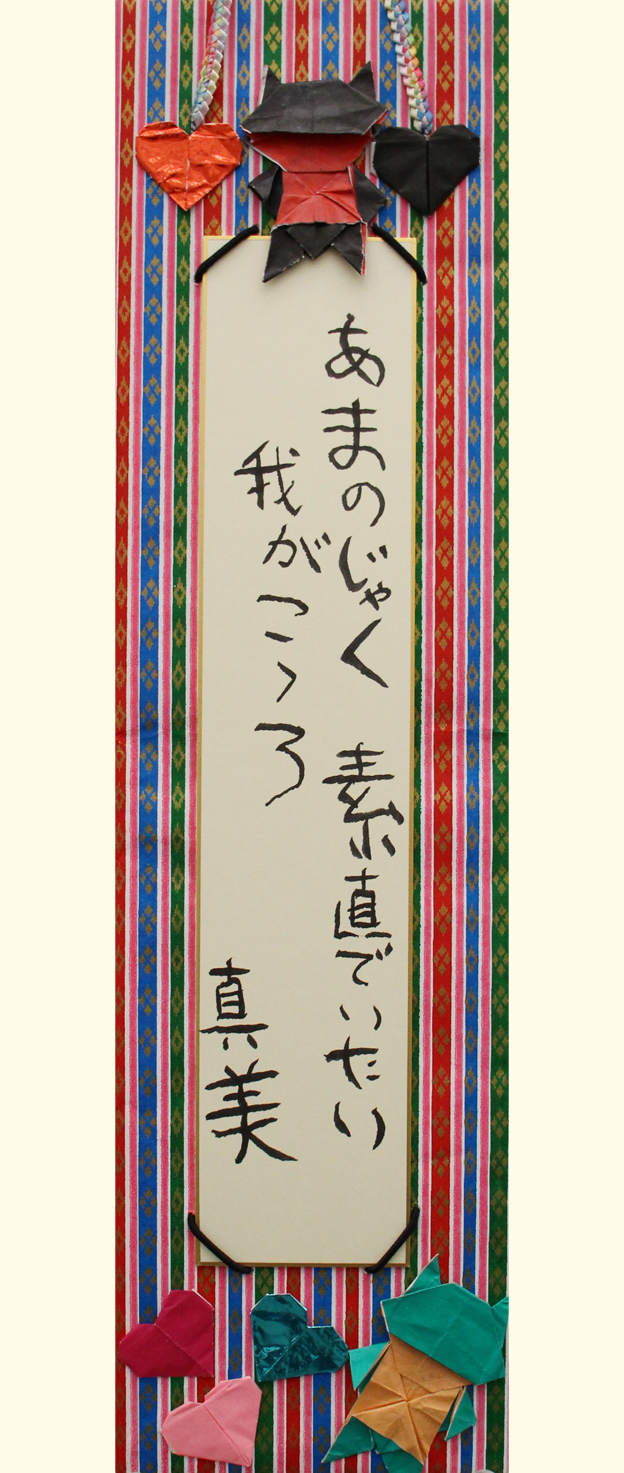 あまのじゃく　素直でいたい
我がこゝろ
真美